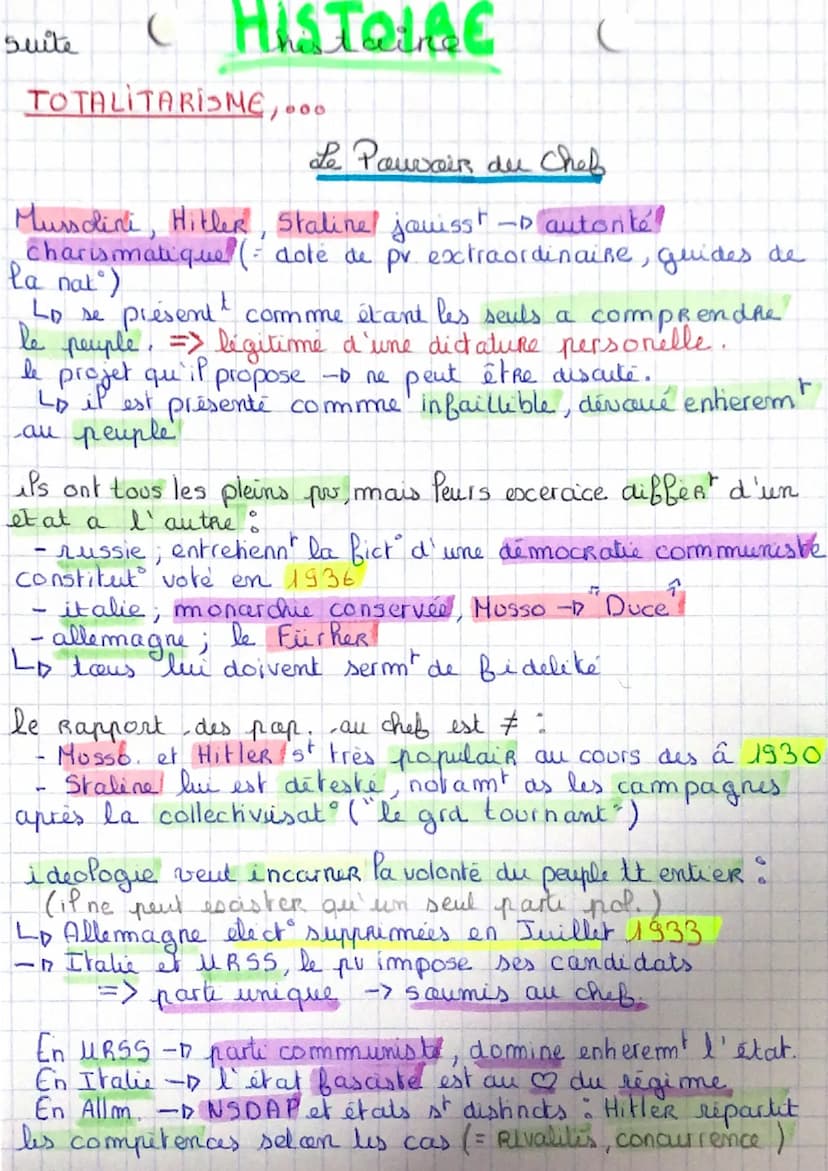 HISTOIRE
suite histoire
TOTALITARISME,...
Le Pouvoir du Chef
Mussolini, Hitler, Staline jouisst → autorité
charismatique (= doté de pv extraordinaire, guides de
la nat°)
↳ se présentt comme étant les seuls a comprendre
le peuple. => légitime d'une dictature personelle.
le projet qu'il propose → ne peut être discuté.
↳ il est présenté comme infaillible, dévoué entieremt
au peuple
ils ont tous les pleins pvr, mais leurs excercice diffèrt d'un
etat a l'autre :
- russie ; entretiennt la fict° d'une démocratie communiste
constitut° voté en 1936
- italie ; monarchie conservée, Musso → "Duce"
- allemagne ; le Fürher
↳ tous lui doivent sermt de fidelité
le rapport des pop. au chef est ≠ :
- Musso. et Hitler st très populair au cours des â 1930
- Staline lui est détesté, notamt ds les campagnes
après la collectivisat° ("le grd tournant")
ideologie veut incarner la volonté du peuple tt entier :
(il ne peut exister qu'un seul parti pol.)
↳ Allemagne elect° supprimées en Juillet 1933
→ Italie et URSS, le pv impose ses candidats
=> parti unique → soumis au chef.
En URSS → parti communiste, domine entieremt l'état.
En Italie → l'état fasciste est au ♡ du régime
En Allm. → NSDAP et états st distincts : Hitler répartit
les compétences selon les cas (= rivalités, concurrence)